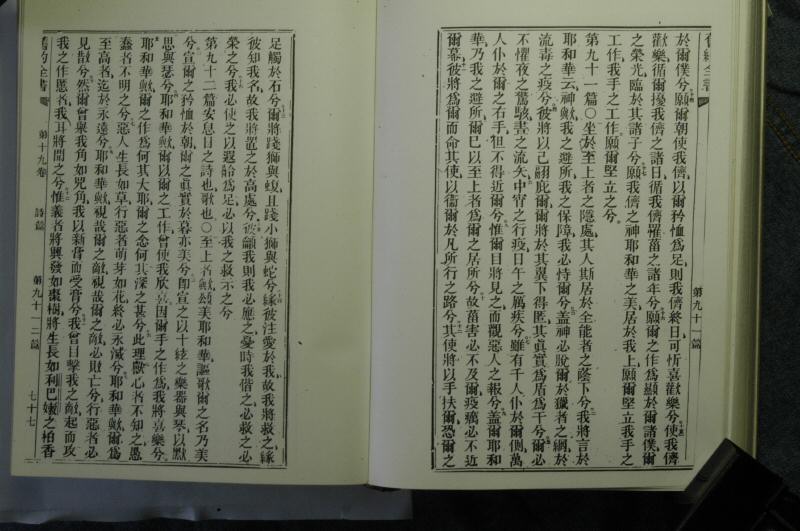 舊約全書
於爾僕兮、願爾朝使我儕以爾矜恤爲足、則我儕終日可忻喜歡樂兮、使我儕
歡樂循爾擾我儕之諸日、循我儕罹菑之諸年兮、願爾之作爲顯於爾諸僕、爾
之榮光臨於其諸子兮、願我儕之神耶和華之美居於我上、願爾堅立我手之
工作、我手之工作願爾堅立之兮。
第九十一篇○坐於至上者之隱處、其人斯居於全能者之蔭下兮、我將言於
耶和華云、神歟、我之避所、我之保障、我必恃爾兮、蓋神必脫爾於獵者之網、於
流毒之疫兮、彼將以己翮庇爾、爾將於其翼下得匿、其眞實爲盾爲干兮、爾必
不懼夜之驚駭、晝之流矢、中宵之行疫、日午之厲疾兮、雖有千人仆於爾側、萬
人仆於爾之右手、但不得近爾兮、惟爾目將見之、而觀惡人之報兮、蓋爾耶和
華乃我之避所、爾已以至上者爲爾之居所兮、故菑害必不及爾、疫癘必不近
爾幕、彼將爲爾而命其使、以衞爾於凡所行之路兮、其使將以手扶爾、恐爾之
第九十一篇
足觸於石兮、爾將踐獅與蝮、且踐小獅與蛇兮、緣彼注愛於我、故我將救之、緣
彼知我名、故我將置之於高處兮、彼籲我則我必應之、憂時我偕之、必救之、必
榮之兮、我必使之以遐齡爲足、必以我之救示之兮
第九十二篇安息日之詩也、歌也○至上者歟、頌美耶和華、謳歌爾之名乃美
兮、宣爾之矜恤於朝、爾之眞實於暮、亦美兮、卽宣之以十絃之樂器與琴、以默
思與瑟兮、耶和華歟、爾以爾之工作曾使我欣喜、因爾手之作爲、我將喜樂兮、
耶和華歟、爾之作爲何其大耶、爾之念何其深之甚兮、此理獸心者不知之、愚
蠢者不明之兮、惡人生長如草、行惡者萌芽如花、終必永滅兮、耶和華歟、爾爲
至高者、迄於永遠兮、耶和華歟、視哉爾之敵、視哉爾之敵必敗亡兮、行惡者必
見散兮、然爾曾舉我角如兕角、我以新膏而受膏兮、我曾目擊我之敵、起而攻
我之作慝者、我耳將聞之兮、惟義者將興發如棗樹、將生長如利巴嫩之柏香
舊約全書
第十九卷
詩篇
第九十一二篇
七十七